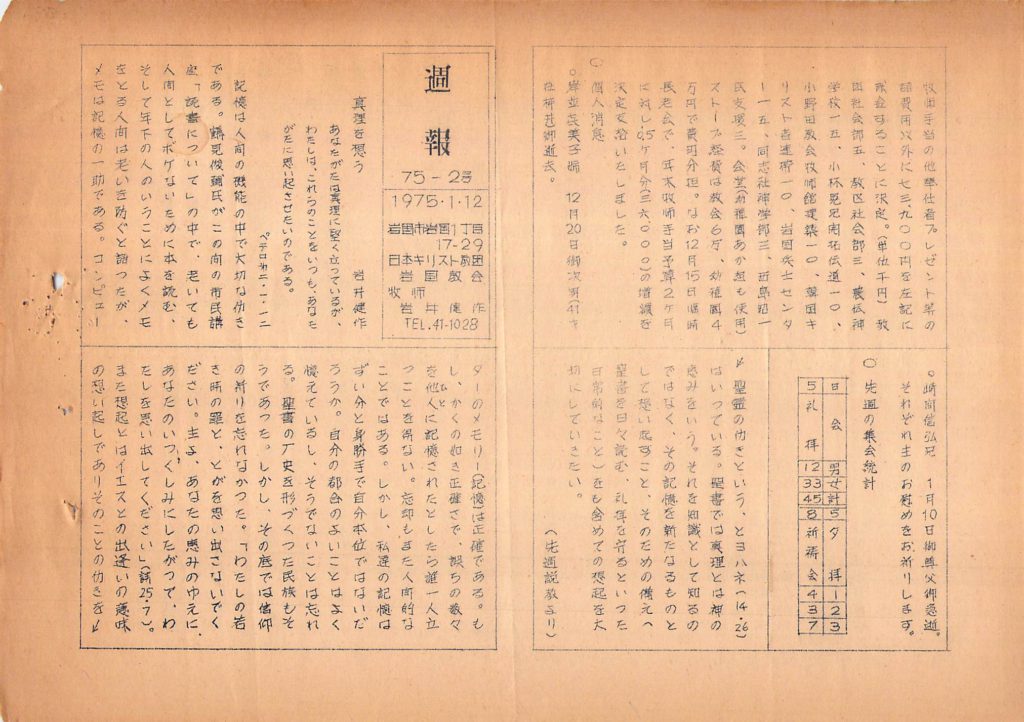 週報
75-2号
1975・1・12
岩国市岩国1丁目
17-29
日本キリスト教団
岩国教会
牧師
岩井健作
TEL.41-1028
真理を想う
岩井健作
あなたがたは真理に堅く立っているが、
わたしは、これらのことをいつも、あなた
がたに思い起させたいのである。
ペテロ第二・一・一二
記憶は人間の機能の中で大切な働き
である。鶴見俊輔氏がこの間の市民講
座「読書について」の中で、老いても
人間としてボケないために本を読む、
そして年下の人のいうことによくメモ
をとる人間は老いを防ぐと語ったが、
メモは記憶の一助である。コンピュー
ターのメモリー(記憶)は正確である。も
し、かくの如き正確さで、誤ちの数々
を他人に記憶されたとしたら誰一人立
つことを得ない。忘却もまた人間的な
ことではある。しかし、私達の記憶は
ずい分と身勝手で自分本位ではないだ
ろうか。自分の都合のよいことはよく
憶えているし、そうでないことは忘れ
る。聖書の厂史を形づくった民族もそ
うであった。しかし、その底では信仰
の祈りを忘れなかった。「わたしの若
き時の罪と、とがを思い出さないでく
ださい。主よ、あなたの恵みのゆえに、
あなたのいつくしみにしたがって、わ
たしを思い出してください」(詩25・7)。
また想起とはイエスとの出逢いの意味
の想い起しでありそのことの働きを↙
↙聖霊の働きという、とヨハネ(14・26)
はいっている。聖書では真理とは神の
恵みをいう。それを知識として知るの
ではなく、その記憶を新たなるものと
して想い起すこと、そのための備えへ
聖書を日々読む、礼拝を守るといった
日常的なこと)をも含めての想起を大
切にしていきたい。
(先週説教より)
牧師手当の他奉仕者プレゼント等の
諸費用以外に七三九〇〇円を左記に
献金することに決定。(単位千円) 教
団社会部五、教区社会部三、農伝神
学校一五、小林晃兄開拓伝道一〇、
小野田教会牧師館建築一〇、韓国キ
リスト者連帯一〇、岩国兵士センタ
ー一五、同志社神学部三、
民支援三。会堂(幼稚園あか組も使用)
ストーブ経費は教会6万、幼稚園4
万円で費用分担。なお12月15日臨時
長老会で、年末牧師手当予算2ヶ月
に対し0.5ヶ月分(三六〇〇〇)の増額を
決定支給いたしました。
○個人消息
○岸並英美子姉 12月20日御次男(41才
在柳井)御逝去。
○崎間信弘兄 1月10日御尊父御急逝。
それぞれ主のお慰めをお祈りします。
○先週の集会統計
日 会 男 女 計 5 夕拝 1 2 3
5 礼拝 12 33 45 8 祈祷会 4 3 7